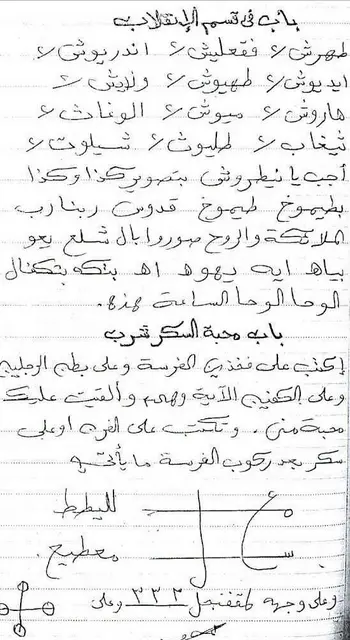 باب في قسم الإنقلاب
طهرش ٢ فقعليش ٢ اندريوش ٢
ايديوش ٢ طهيوش ٢
هاروش ٢ ميوش ٢ الوغاث ٢
ثيغاب ٢ طليوث ٢ شيلوت ٢
أجب يا نيطروش بتصوير كذا وكذا
بطيموخ طيموخ قدوس ربنا رب
الملائكة والروح صوروا بال شلع يعو
بياه ايه يهوه اه بتكه بتكال
الوحا الوحا الساعة بهذه.
باب محبة السكر شرب
إكتب على فخذي الفرسة وعلى بطن الرجلين
وعلى الكفين الآية وهم وألقيت عليك
محبة مني. وتكتب على الفرج أو على
سكر بعد ركوب الفرسة ما يأتي
لليطط
معطيع.
وعلى وجهه ٢٢٢ وعلى